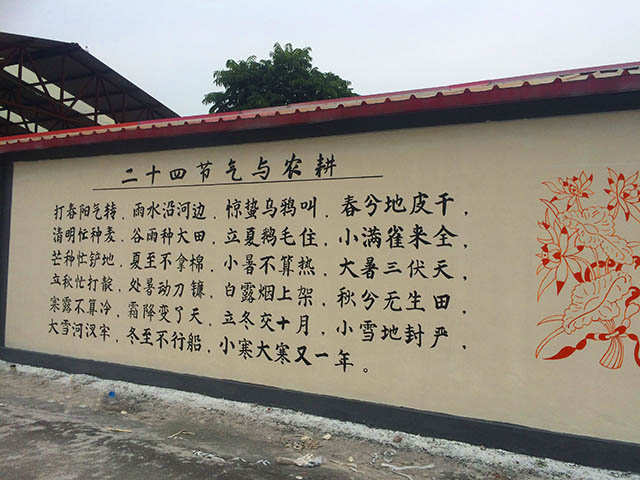 二十四节气与农耕
打春阳气转，雨水沿河边，惊蛰乌鸦叫，春兮地皮干，
清明忙种麦，谷雨种大田，立夏鹅毛住，小满雀来全，
芒种忙铲地，夏至不拿棉，小暑不算热，大暑三伏天，
立秋忙打靛，处暑动刀镰，白露烟上架，秋兮无生田，
寒露不算冷，霜降变了天，立冬交十月，小雪地封严，
大雪河汊牢，冬至不行船，小寒大寒又一年。